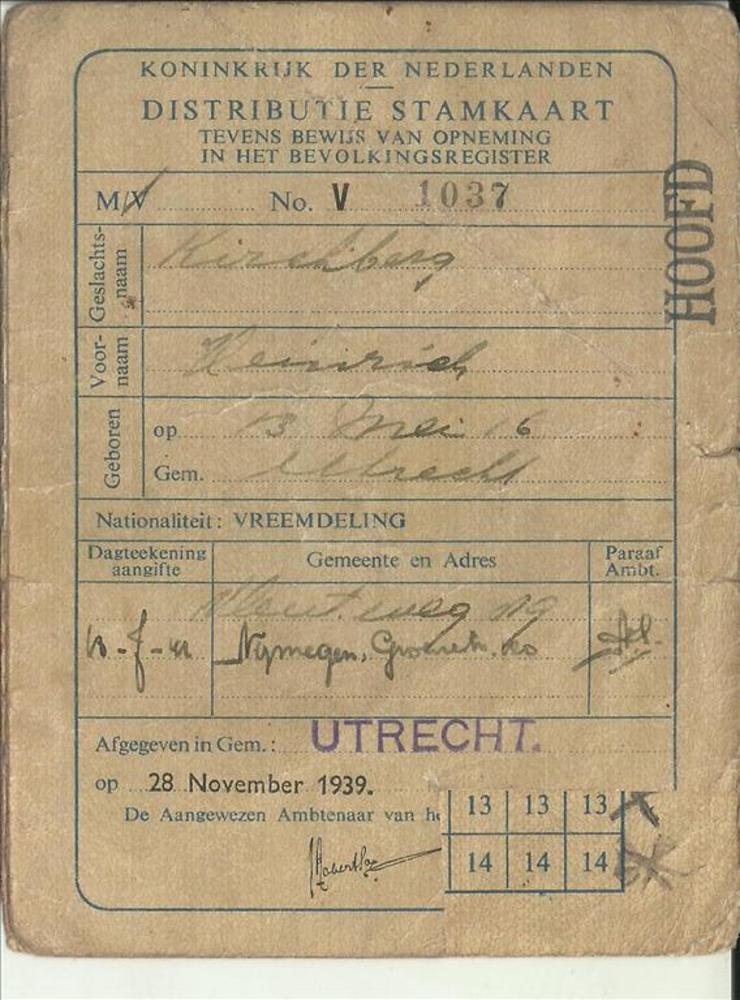 KONINKRIJK DER NEDERLANDEN
DISTRIBUTIE STAMKAART
TEVENS BEWIJS VAN OPNEMING
IN HET BEVOLKINGSREGISTER
M/V No. V 1037
HOOFD
Geslachts-
naam
Kirchberg
Voor-
naam
Heinrich
Geboren
op 13 Mei 16
Gem. Utrecht
Nationaliteit: VREEMDELING
Dagteekening
aangifte
Gemeente en Adres
Paraaf
Ambt.
weg
Nijmegen,
Afgegeven in Gem.: UTRECHT.
op 28 November 1939.
De Aangewezen Ambtenaar van
13 13 13
14 14 14